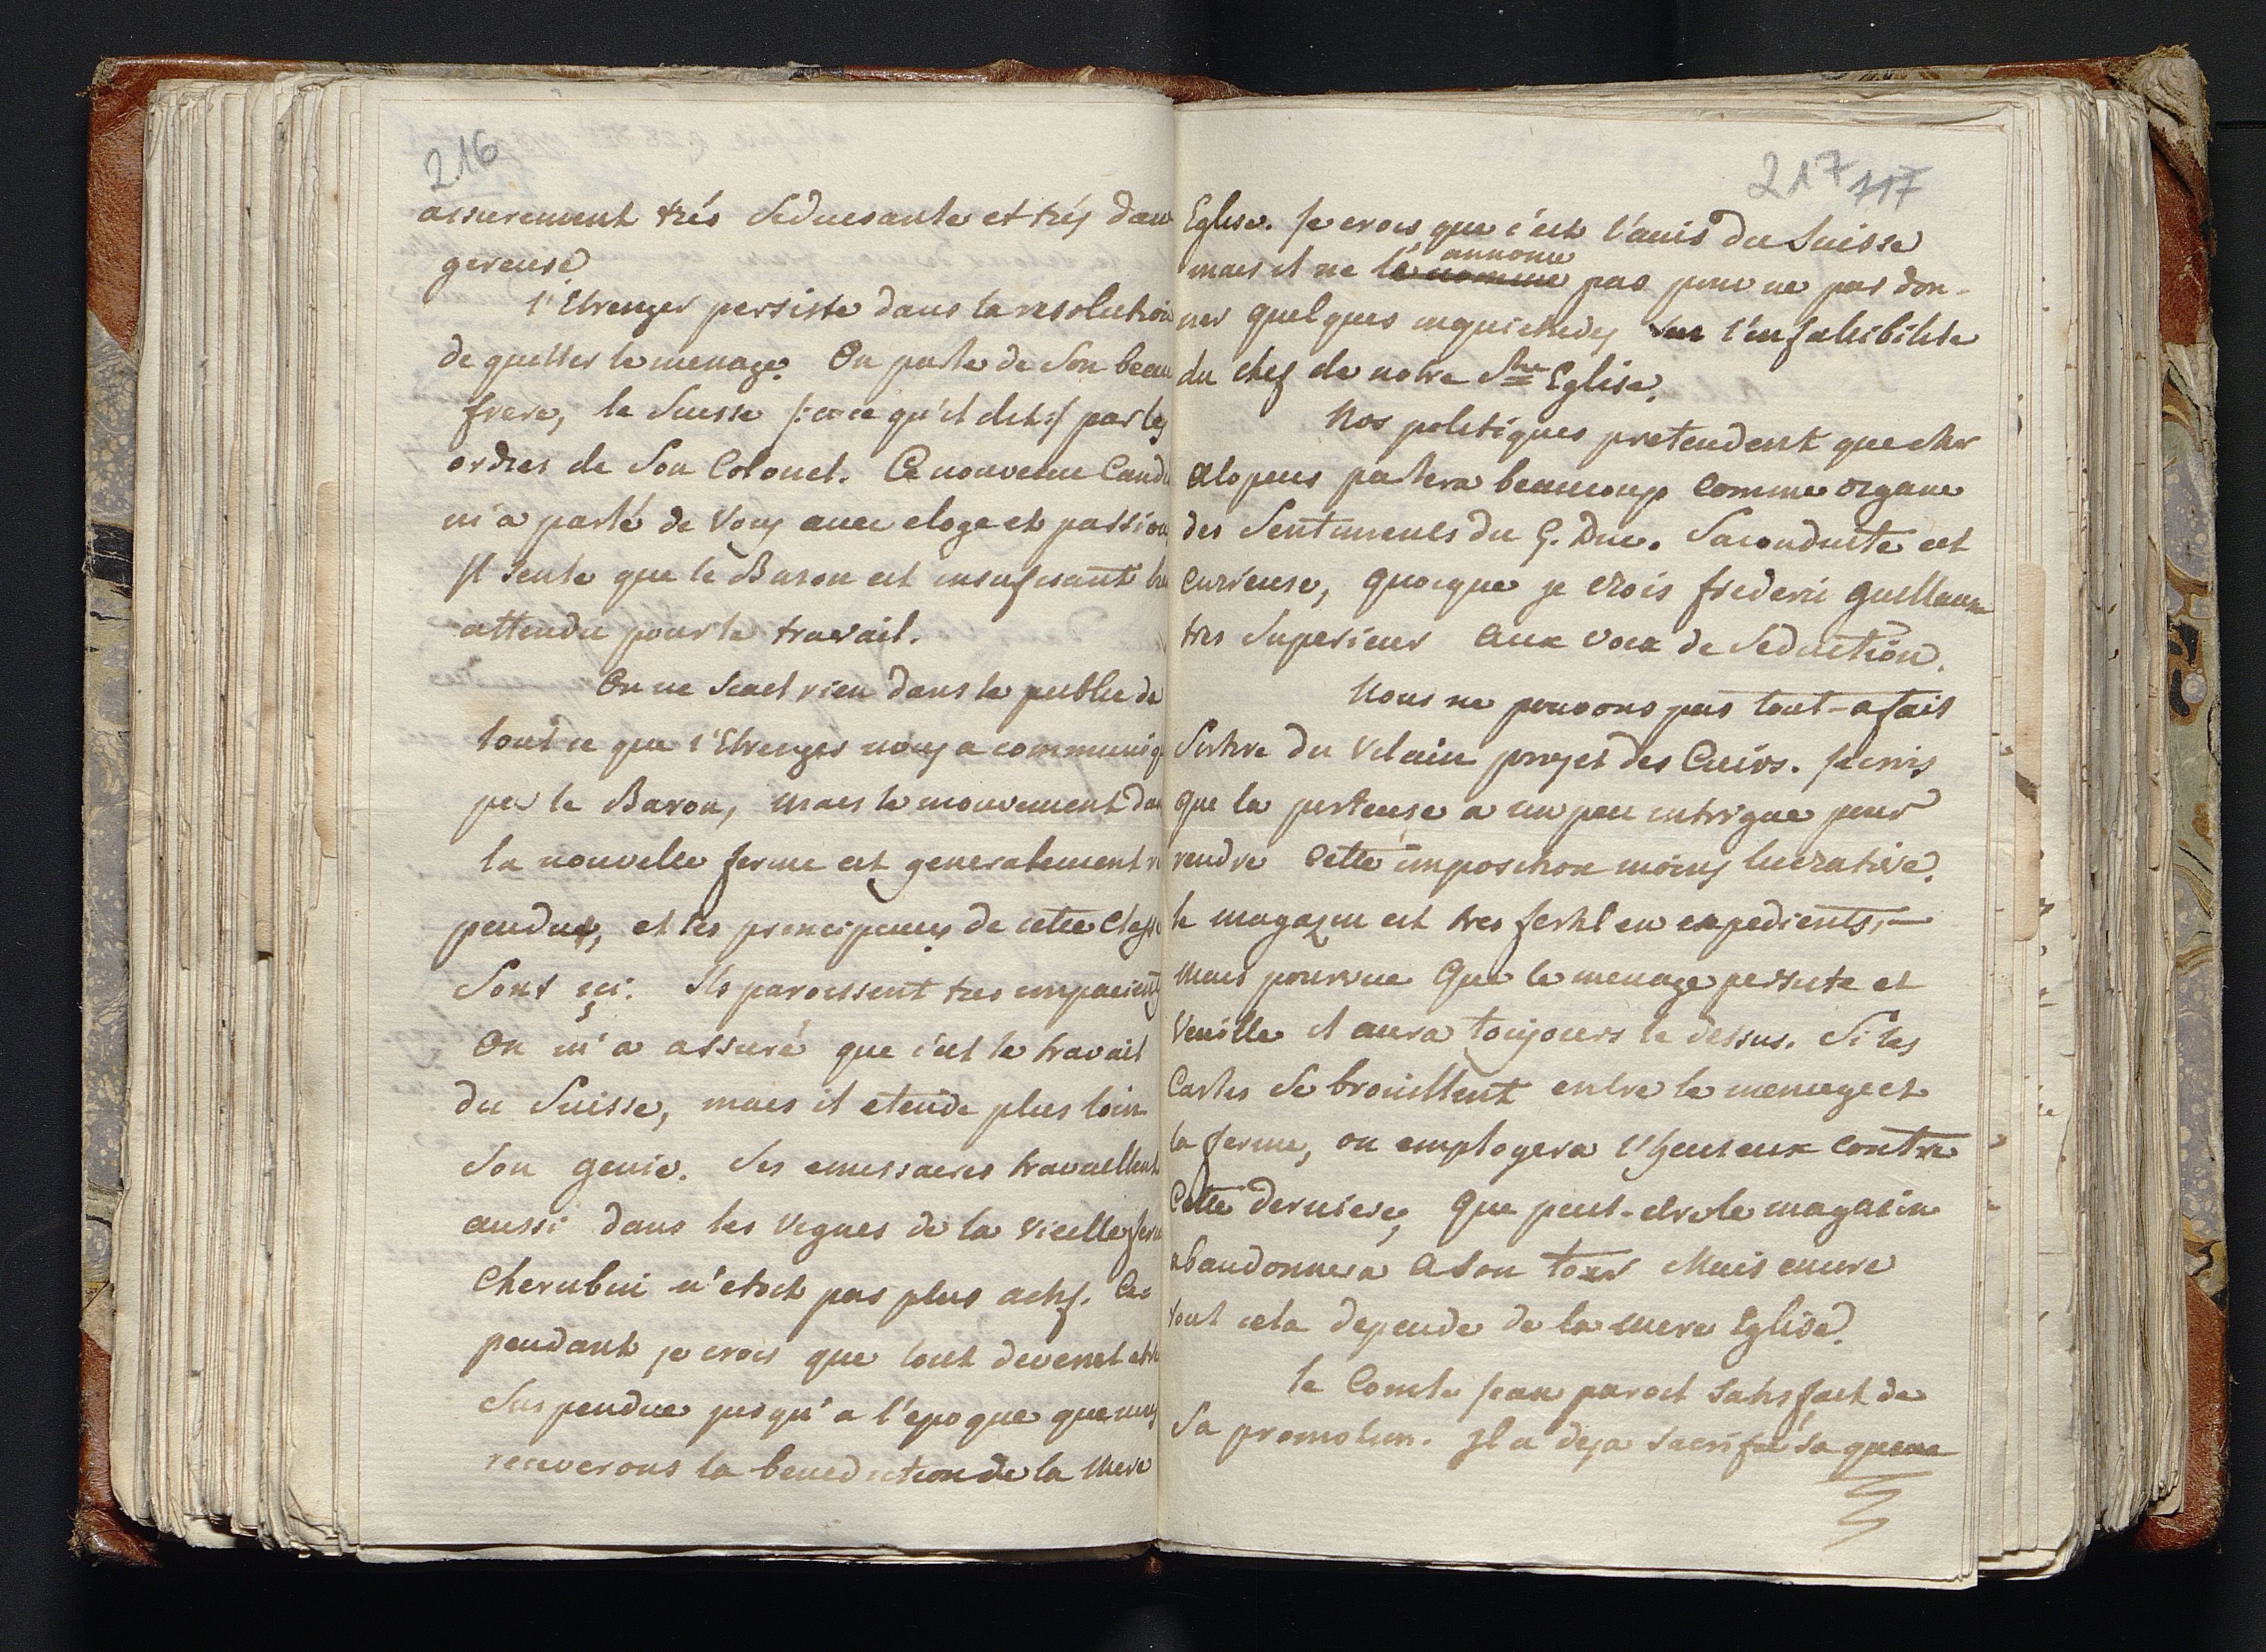 216
assurement trés seduesante et trés dan
gereuse
l'Etrenger persiste dans la resolution
de quitter le menage. On parle de Son beau
frere, le Suisse /: a ce qu'il dit :/ par les
ordres de Son Colonel. Ce nouveau Candi
m'a parlé de Vous avec eloge et passion
Il sente que le Baron est insufisant
attendu pour le travail.
On ne scait rien dans le public de
tout ce que l'Etrenger nous a communiq
par le Baron, mais le mouvement dan
la nouvelle ferme est generalement re
pendue, et les principaux de cette Classe
Sont içi. Ils paroissent tres impacients
On m'a assuré que c'est le travail
du Suisse, mais il etende plus loin
Son genie. Ses emissaires travaillent
aussi dans les vignes de la vieille ferm
Cherubin n'etoit pas plus actif. Ce-
pendant je crois que tout devenet etre
Suspendue jusqu'a l'epoque que nous
reciverons la benediction de la Mere
217 117
Eglise. Je crois que c'est l'avis du Suisse
annonce
mais il ne le nomme pas pour ne pas don-
ner quelques inquietudes sur l'infalibilite
du chef de notre Ste Eglise.
Nos politiques pretendent que cher
Alopeus parlera beaucoup comme organe
des Sentiments du G. Duc. Sa conduite est
curieuse, quoique je crois frederic guillaume
tres superieur aux voix de seduction.
Nous ne pouvons pas tout-a fais
Sortire du vilain projet des Cuirs. Je crois
que la porteuse a un peu intrigue pour
rendre cette imposition moins lucrative.
le magazin est tres fertil en expedients,-
Mais pourvue que le menage persiste et
Veuille il aura toujours le dessus. Si les
Cartes se brouillent entre le menage et
la ferme, on employera l'heureux contre
Cette derniere, que peut-etre le magasin
abandonnera a son tour Mais encore
tout cela depende de la mere Eglise.
le Comte Jean paroit satisfait de
Sa promotion. Il a deja sacrifié sa queue